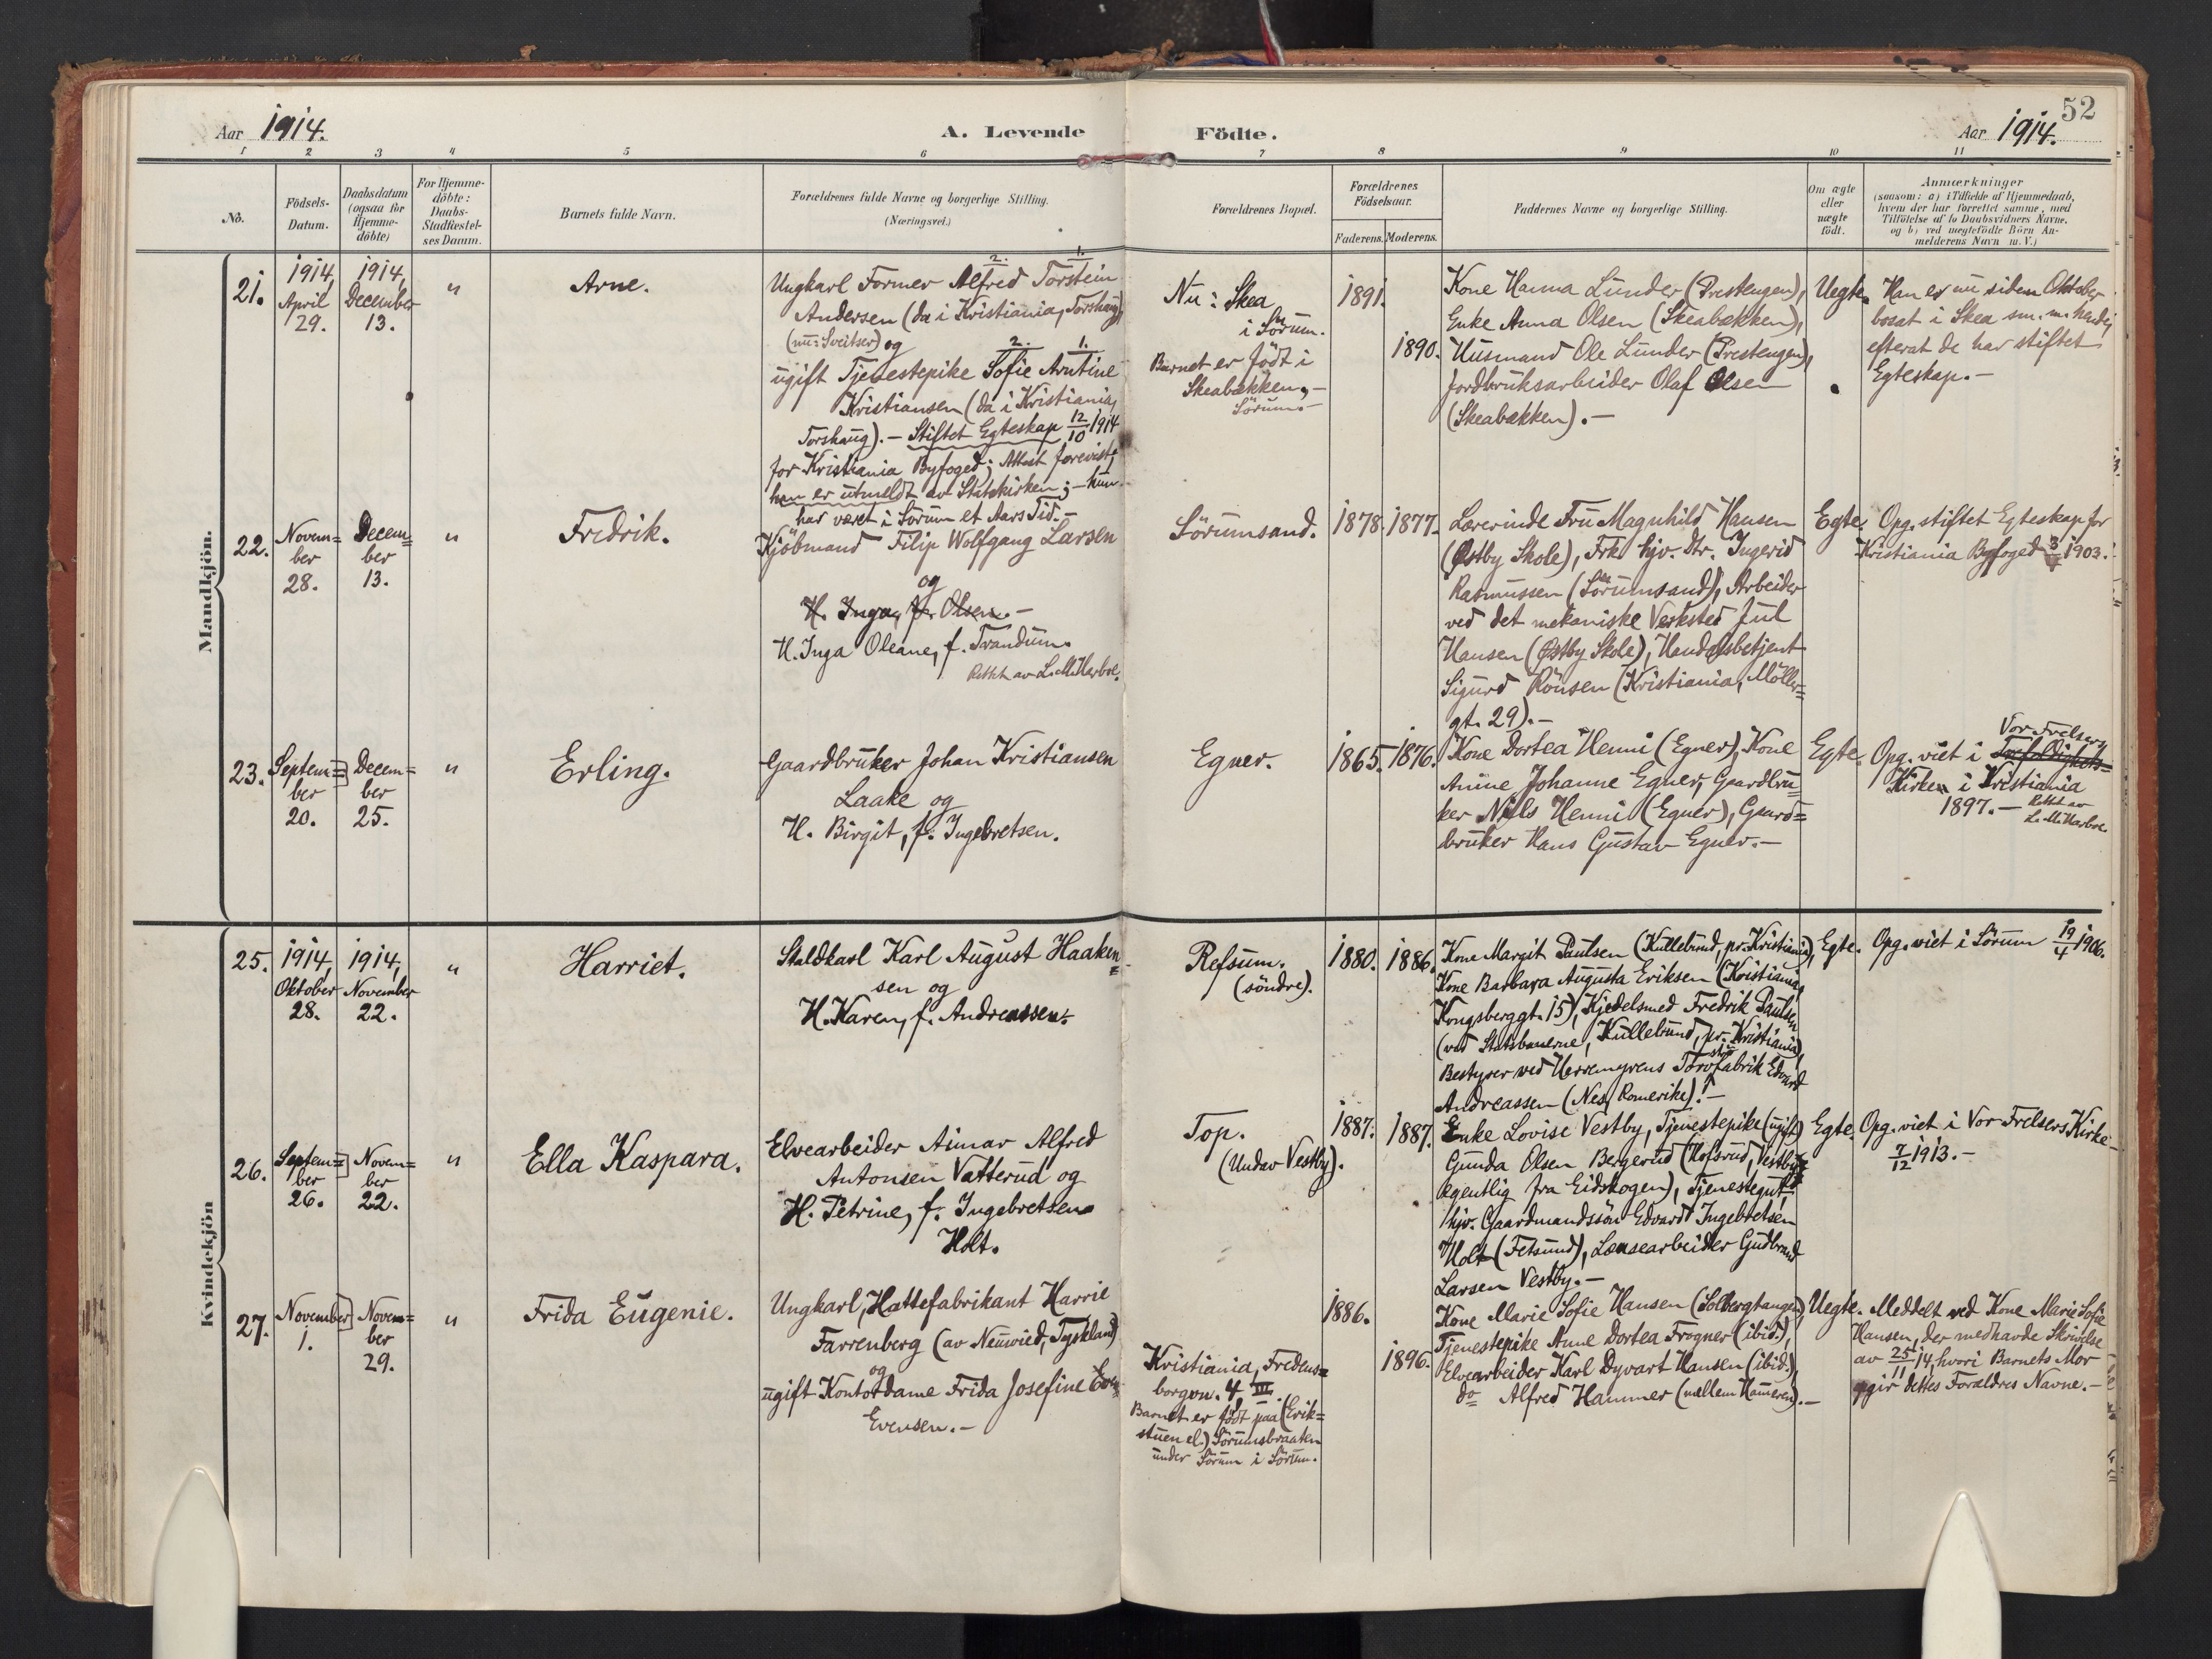 52
Aar 1914.
A. Levende Födte.
Aar 1914.
1 2 3 4 5 6 7 8 9 10 11
No.
Födsels-
Datum.
Daabsdatum
(ogsaa for
Hjemme-
döbte)
For Hjemme-
döbte:
Daabs-
Stadfæstel-
ses Datum.
Barnets fulde Navn.
Forældrenes fulde Navne og borgerlige Stilling.
(Næringsvei.)
Forældrenes Bopæl.
Forældrenes
Födselsaar.
Faderens. Moderens.
Faddernes Navne og borgerlige Stilling.
Om ægte
eller
uægte
födt.
Anmærkninger
(saasom: a) i Tilfælde af Hjemmedaab,
hvem der har forrettet samme, med
Tilföielse af to Daabsvidners Navne,
og b) ved uægtefödte Börn An-
melderens Navn m. V.)
Mandkjön.
21.
1914,
April
29.
1914,
December
13.
"
Arne.
2. 1.
Ungkarl Former Alfred Torstein
Andersen (da i Kristiania, Torshaug)
(nu: Sveitser) og
2. 1.
ugift Tjenestepike Sofie Arntine
Kristiansen (da i Kristiania,
Torshaug). - Stiftet Egteskap 12/10 1914
for Kristiania Byfoged; Attest forevist;
han er utmeldt av Statskirken; - hun
har været i Sörum et Aars Tid. -
Nu: Skea
i Sörum.
Barnet er födt i
Skeabækken, -
Sörum. -
1891.
1890.
Kone Hanna Lunder (Prestengen),
Enke Anna Olsen (Skeabækken),
Husmand Ole Lunder (Prestengen),
Jordbruksarbeider Olaf Olsen
(Skeabækken). -
Uegte.
Han er nu siden Oktober
bosat i Skea sm. m. hende,
efterat de har stiftet
Egteskap. -
22.
Novem=
ber
28.
Decem=
ber
13.
"
Fredrik.
Kjöbmand Filip Wolfgang Larsen
og
H. Inga, f. Olsen. -
H. Inga Oleane, f. Trandum.
Rettet av L. M. Harboe.
Sörumsand.
1878. 1877.
Lærerinde Fru Magnhild Hansen
(Østby Skole), Frk. hjv. Dtr. Ingerid
Rasmussen (Sörumsand), Arbeider
ved det mekaniske Verksted Jul
Hansen (Østby Skole), Handelsbetjent
Sigurd Rönsen (Kristiania, Möller=
gt. 29). -
Egte.
Opg. stiftet Egteskap for
Kristiania Byfoged 3/ 1903.
23.
Septem=
ber
20.
Decem=
ber
25.
"
Erling.
Gaardbruker Johan Kristiansen
Laake og
H. Birgit, f. Ingebretsen.
Egner.
1865. 1876.
Kone Dortea Henni (Egner), Kone
Anine Johanne Egner, Gaardbru=
ker Nils Henni (Egner), Gaard=
bruker Hans Gustav Egner. -
Egte.
Vor Frelsers
Opg. viet i Trefoldigheds=
Kirken i Kristiania
1897. - Rettet av
L. M. Harboe.
Kvindekjön
25.
1914,
Oktober
28.
1914,
November
22.
"
Harriet.
Staldkarl Karl August Haaken=
sen og
H. Karen, f. Andreassen.
Refsum.
(söndre).
1880. 1886.
Kone Margit Paulsen (Kullebund, pr. Kristiania),
Kone Barbara Augusta Eriksen (Kristiania,
Kongsberggt. 15), Kjedelsmed Fredrik Paulsen
(ved Statsbanerne, Kullebund, pr. Kristiania),
Bestyrer ved Herremyrens Torvströfabrik Edvard
Andreassen (Nes, Romerike). -
Egte.
Opg. viet i Sörum 19/4 1906.
26.
Septem=
ber
26.
Novem=
ber
22.
"
Ella Kaspara.
Elvearbeider Aimar Alfred
Antonsen Vatterud og
H. Petrine, f. Ingebretsen
Holt.
Top.
(Undav Vestby).
1887. 1887.
Enke Lovise Vestby, Tjenestepike (ugift)
Gunda Olsen Bergerud (Hofsrud, Vestby,
egentlig fra Eidskogen), Tjenestegut,
hjv. Gaardmandssön Edvard Ingebretsen
Holt (Fetsund), Lensearbeider Gudbrand
Larsen Vestby. -
Egte.
Opg. viet i Vor Frelsers Kirke
7/12 1913. -
27.
November
1.
Novem=
ber
29.
"
Frida Eugenie.
Ungkarl, Hattefabrikant Harrie
Farrenberg (av Neuwied, Tyskland)
og
ugift Kontordame Frida Josefine
Evensen. -
Kristiania, Fredens=
borgvn. 4 III.
Barnet er födt paa (Erik=
stuen el.) Sörumsbraaten
under Sörum i Sörum.
1886.
1896.
Kone Marie Sofie Hansen (Solbergtangen),
Tjenestepike Anne Dortea Frogner (ibid.),
Elvearbeider Karl Dyvart Hansen (ibid.),
do Alfred Hammer (mellem Hameren). -
Uegte.
Meddelt ved Kone Marie Sofie
Hansen, der medhavde Skrivelse
av 25/11 14, hvori Barnets Mor
opgir dettes Forældres Navne. -